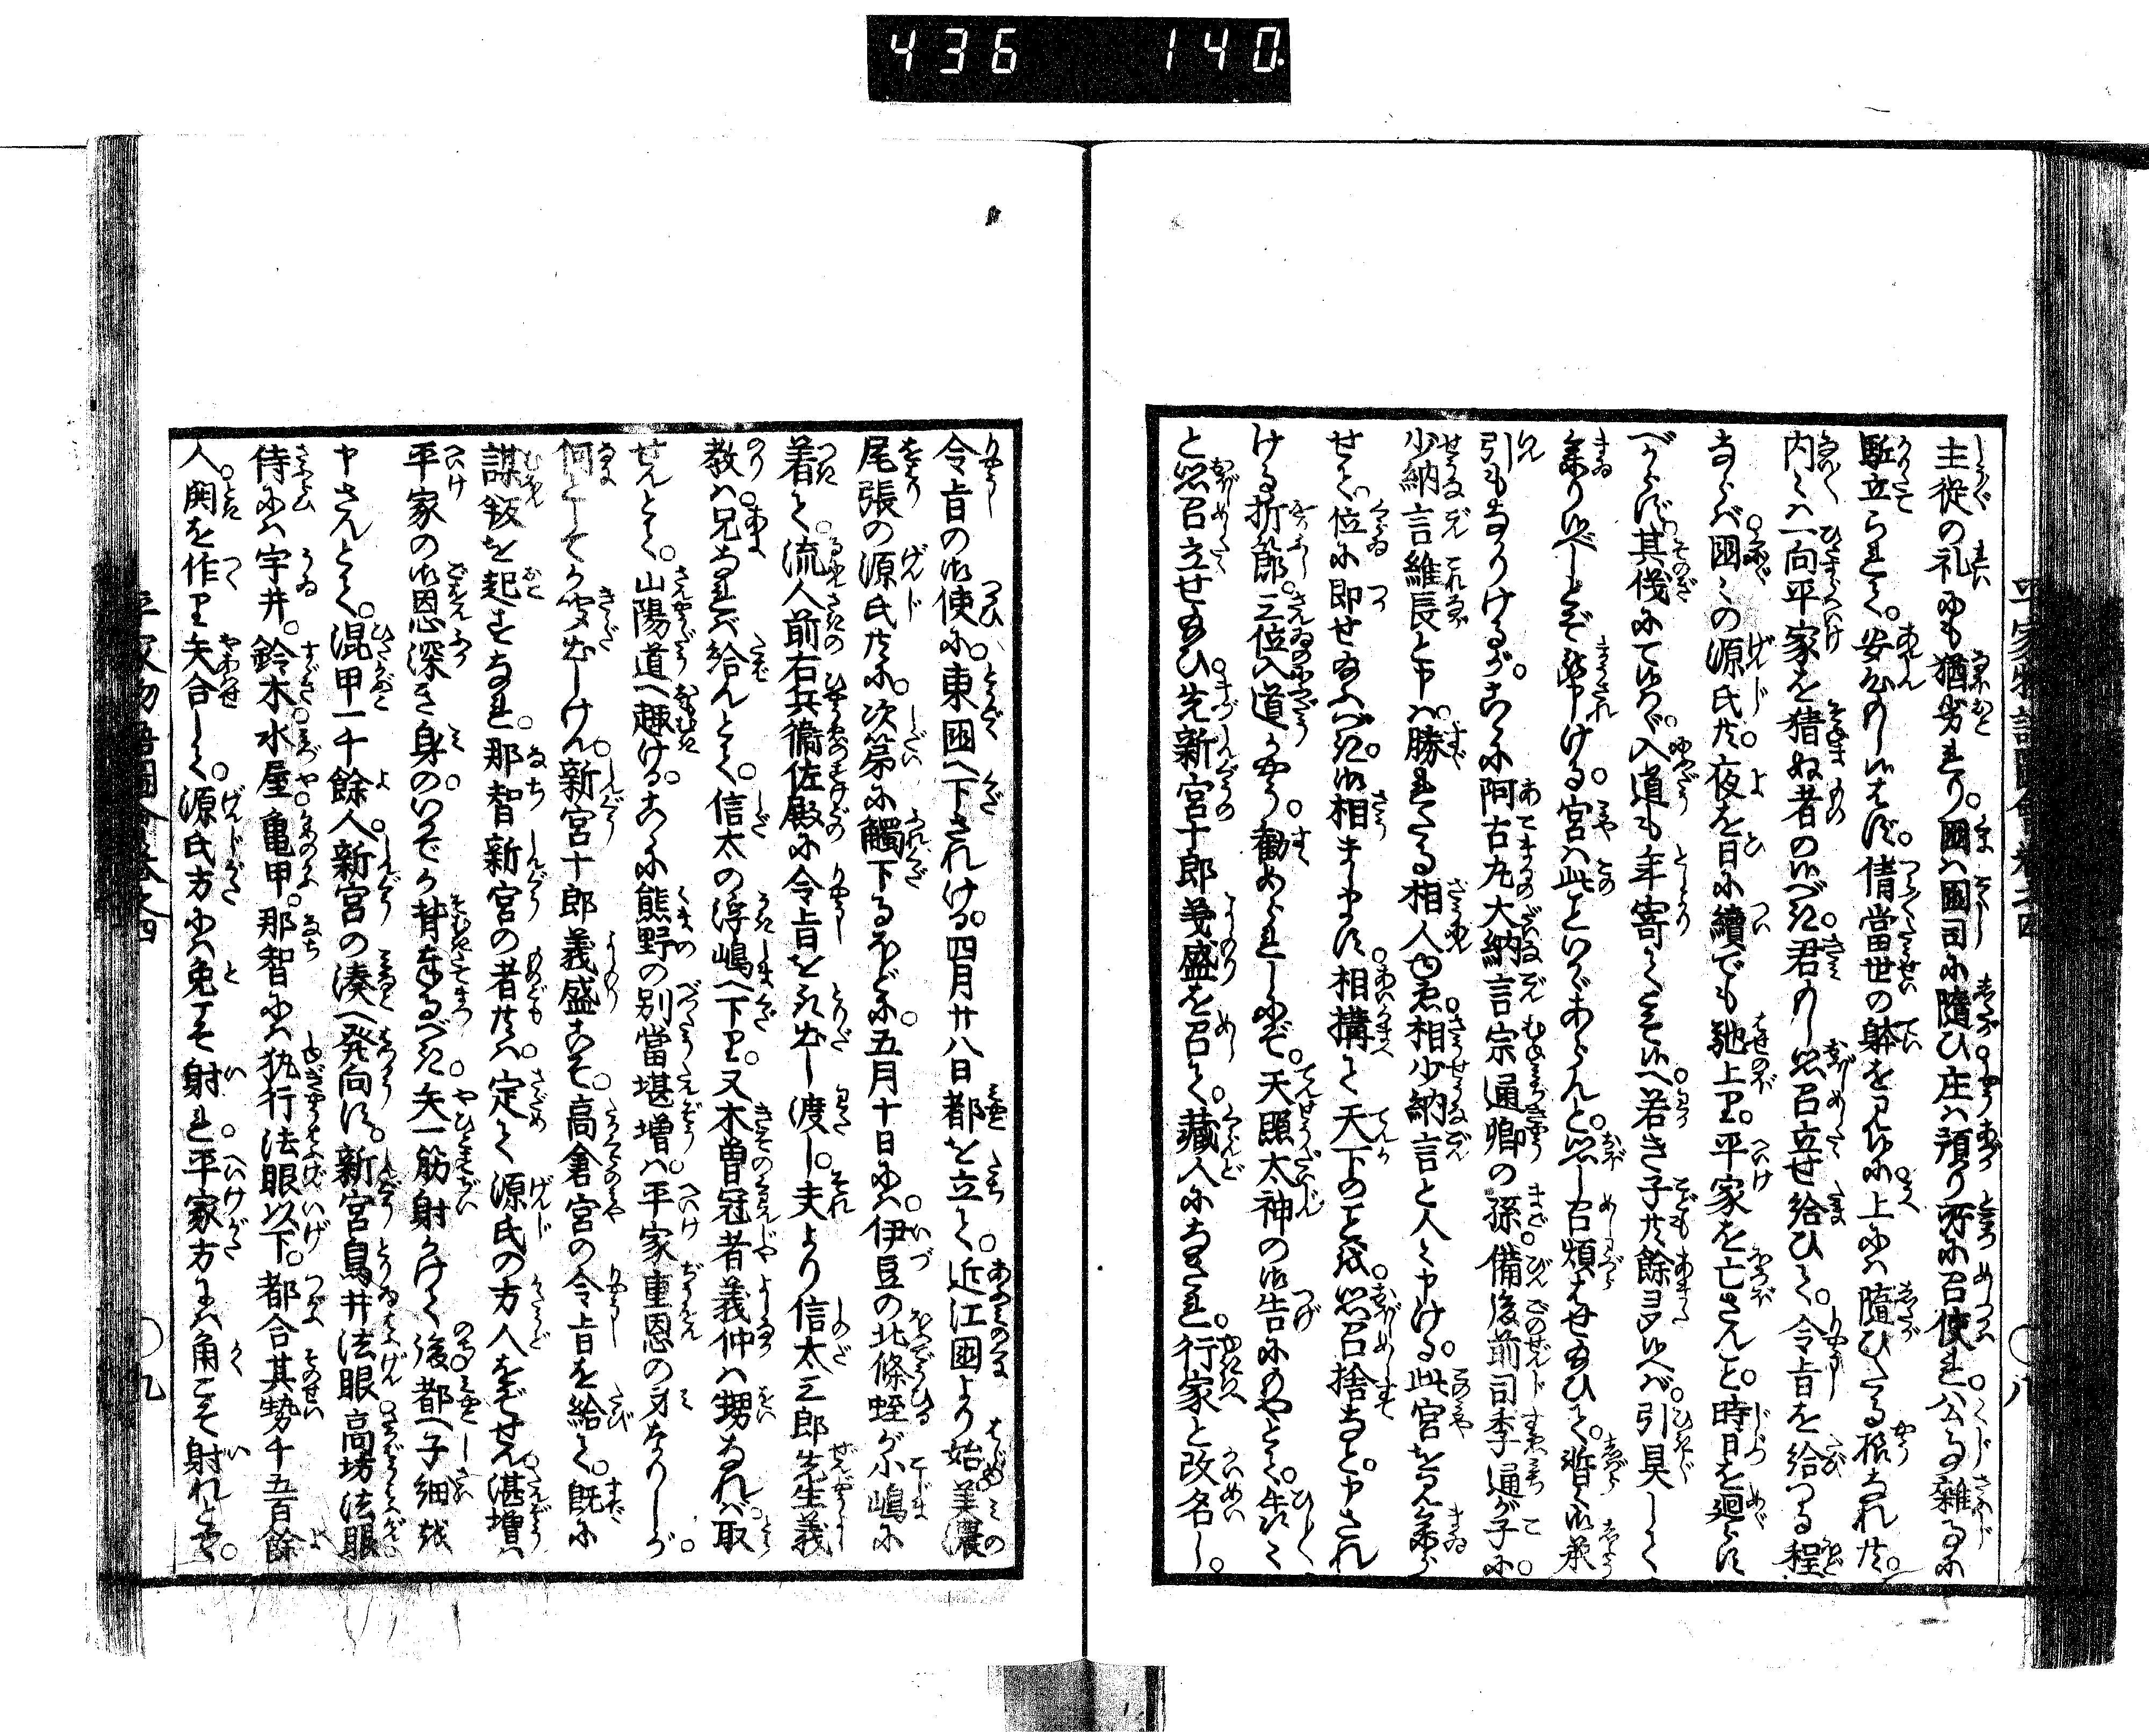 436 140
平家物語圖會巻之四 〇八
主従の礼にも猶劣れり。國は國司に隨ひ庄は預り所に召使れ公事雑事に
駈立られて。安からん心もし候はず。倩當世の躰を見候に上には隨ひたる様なれ共。
内々は一向平家を猜ぬ者の候べき。君もし思召立せ給ひて。令旨を給つる程
ならバ国々の源氏共。夜を日に續でも馳上り。平家を亡さんと。時日を廻らす
べからず。其儀にて候はゞ。入道も年寄てこそ候へ若き子共餘ヨタ候へバ。引具して
参り候べしとぞ被申ける。宮は此といかゞあらんと。思し召煩はせ給ひて。暫は御承
引もなかりけるが。こゝに阿古丸大納言宗通卿の孫。備後前司季通が子に。
少納言維長と申は。勝れたる相人ゆゑ相少納言と人々申ける。此宮を見参ら
せて。位に即せ給ふべき。御相まします。相構て天下のこと思召捨なと。申され
ける折節。三位入道か様に勧め申されしにぞ。天照太神の御告にもやとて。ひたく
と思召立せ給ひ先新宮十郎義盛を召て。蔵人になされ。行家と改名し。
令旨の御使に。東国へ下されける。四月廿八日都を立て。近江国より始美濃
尾張の源氏共に。次第に觸下るほどに。五月十日には。伊豆の北條蛭が小嶋に
着て。流人前右兵衛佐殿に令旨を取出し渡し。夫より信太三郎先生義
教は。兄なれば給んとて。信太の浮嶋へ下り。又木曽冠者義仲は甥なれバ取
せんとて。山陽道へ趣ける。こゝに熊野の別當堪増は。平家重恩の身なりしが。
何としてか聞出しけん。新宮十郎義盛こそ。高倉宮の令旨を給て。既に
謀叛を起すなれ。那智新宮の者共は。定て源氏の方人をぞせん。湛増は
平家の御恩深き身の。いかでか背奉るべき。矢一筋射かけて後都へ子細を
申さんとて。混甲一千餘人新宮の湊へ発向す。新宮鳥井法眼。高坊法眼
侍には宇井。鈴木水屋亀甲。那智には執行法眼以下。都合其勢千五百餘
人。閧を作り矢合して。源氏方には兎こそ射れ。平家方には角こそ射れとて。
平家物語圖會巻之四 〇九